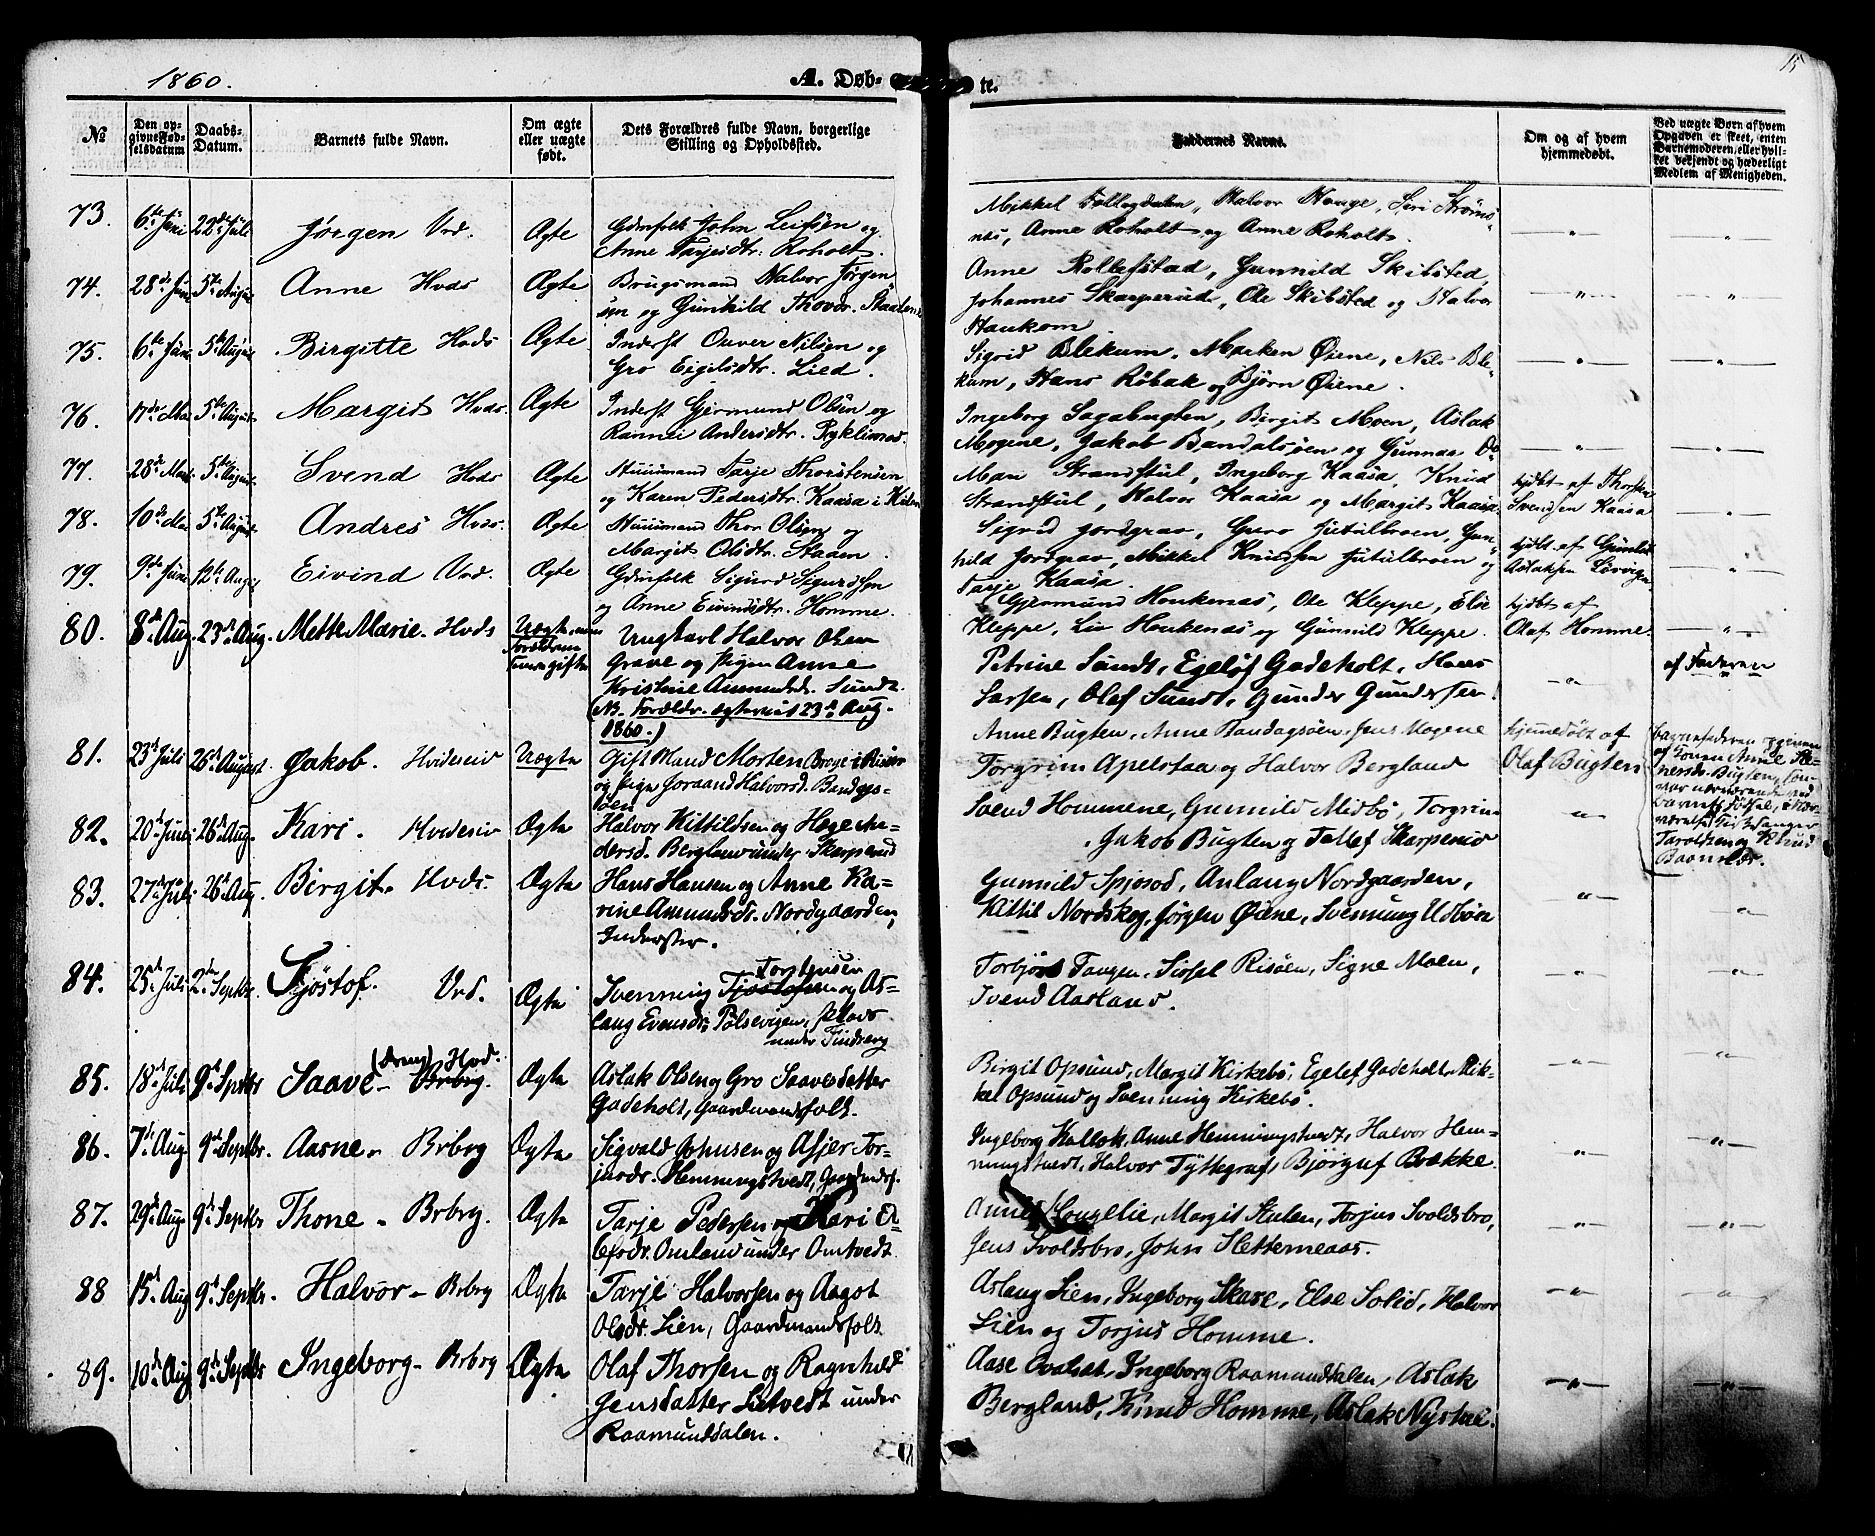 1860.
A. Døb-
te.
15
No
Den op-
givne Fød-
selsdatum
Daabs-
Datum.
Barnets fulde Navn.
Om ægte
eller uægte
født.
Dets Forældres fulde Navn, borgerlige
Stilling og Opholdssted.
Faddernes Navne.
Om og af hvem
hjemmedøbt.
Ved uægte Børn af hvem
Opgaven er skeet, enten
Barnemoderen, eller hvil-
ket bekjendt og hæderligt
Medlem af Menigheden.
73. 6te Juni 22de Juli Jørgen Vrd. Ægte
Gdmfolk John Leifsen og
Anne Roholt.
Mikkel Follogdalen, Halvor Hauge, Siri Strøms-
næs, Anne Roholt og Anne Roholt.
74. 28de Juni 5te August Anne Hvds Ægte
Brugsmand Halvor Jørgen
sen og Gunhild Thovdr. Staalene
Anne Rollefstad, Gunnild Skibsted,
Johannes Skarperud, Ole Skibsted og Halvor
Haukom
75. 6te Juni 5te August Birgitte Hvds Ægte
Inderst Ouver Nilsen og
Gro Eigilsdtr. Lied.
Sigrid Blekum, Marken Øiene, Nils Ble-
kum, Hans Röbak og Bjørn Øiene.
76. 17de Mai 5te August Margit Hvds. Ægte
Inderst Gjermund Olsen og
Rannei Andersdtr.
Ingeborg Sagabugten, Birgit Moen, Aslak
Mogene, Jakob Bandalsøen og Gunnar
77. 28de 5te August Svend Hvds Ægte
Huusmand Tarje Thorstensen
og Karen Pedersdtr. Kaasa i
Mari Strandstul, Ingeborg Kaasa, Knud
Strandstul, Halvor Kaasa og Margit Kaasa.
hjdbt af Thorsten
Svendsen Kaasa
78. 10de Mai 5te August Andres Hvds. Ægte
Huusmand Thor Olsen og
Margit Olsdtr. Staaen.
Sigrid Jordgrav, Gero Jutulbroen, Gun-
hild Jordgrav, Mikkel Knudsen Jutulbroen og
Tarje Kaasa.
hjdbt af Gunleik
Aslaksen Løvvigen
79. 9de Juni 12te Aug. Eivind Vrd. Ægte
Gdmfolk Sigurd Sigurdsen
og Anne Eivindsdtr. Homme.
Gjermund Haukenæs, Ole Kleppe, Else
Kleppe, Liv Haukenæs og Gunnild Kleppe.
hjdbt af
Olaf Homme.
80. 8de Aug. 23de Aug. Mette Marie. Hvds
Uægte, men
Forældrene
gifte
Ungkarl Halvor Olsen
Grave og Pigen Anne
Kristine Ammundsd. Sundt.
(NB. Forældr. ægteviet 23de Aug.
1860.)
Petrine Sundt, Egeløf Gadeholt, Hans
Larsen, Olaf Sundt, Gunder Gundersen
af Faderen
81. 23de Juli 26de August Jakob. Hvideseid Uægte
Gift Mand Morten Brye i Risør
og Pige Joraand Halvorsd. Bandags-
søen
Anne Bugten, Anne Bandagsøen, Jens Mogene
Torgrim Apelstaa og Halvor Bergland
hjemmedøbt af
Olaf Bugten
Barnefaderen opgiven
af Konen Anne
Bugten, som
var nærværende ved
Barnets Fødsel, i Nær-
værelse af
Taraldsen og Knud
82. 20de Juni 26de Aug. Kari. Hvideseid Ægte
Halvor Kittildsen og Hæge An-
dersd. Bergland under Skarperud
Svend Hommene, Gunnild Midbø, Torgrim
Jakob Bugten og Tellef Skarperud
83. 27de Juli 26de Aug. Birgit. Hvds. Ægte
Hans Hansen og Anne Ka-
rine Ammundsdr. Nordgaarden,
Inderster.
Gunnild Spjosod, Anlaug Nordgaarden,
Kittil Nordskog, Jørgen Øiene, Svenning Udbøen
84. 25de Juli 2den Septbr. Tjøstof. Vrd. Ægte
Torstensen
Svenning Tjøstofsen og As-
laug Evensdr. Pølsevigen, Plads
under Findberg
Torbjørn Tangen, Sissel Risøen, Signe Moen,
Svend Aasland.
85. 18de Juli 9de Septbr Saave (Dreng) Hvd. Brbrg. Ægte
Aslak Olsen og Gro Saavesdatter
Gadeholt, Gaardmandsfolk.
Birgit Opsund, Margit Kirkebø, Egelef Gadeholt, Mik-
kel Opsund og Svenning Kirkebø.
86. 7de Aug 9de Septbr. Aasne Brbrg Ægte
Sigvald Johnsen og Asjer Tor-
jusdr. Hemmingstvedt, Gaardmdsf.
Ingeborg Kallok, Anne Hemmingstvedt, Halvor Hem-
mingstvedt, Halvor Tyttegraf, Bjørguf Brække
87. 29de Aug 9de Septbr Thone Brbrg. Ægte
Tarje Pedersen og Kari O-
lefsdr. Omland under Omtvedt
Anne Lougelie, Margit Stulen, Torjus Svoldsbro,
Jens Svoldsbro, John Sletterneaas.
88 15de Aug 9de Septbr. Halvor Brbrg Ægte
Tarje Halvorsen og Aagot
Olsdr. Lien, Gaardmandsfolk
Aslaug Lien, Ingeborg Skare, Else Solid, Halvor
Lien og Torjus Homme.
89. 10de Aug 9de Septbr Ingeborg Brbrg Ægte
Olaf Thorsen og Ragnhild
Jensdatter Lietvedt under
Raamunddalen.
Aase Ovalsat, Ingeborg Raamunddalen, Aslak
Bergland, Knud Homme, Aslak Nystul.